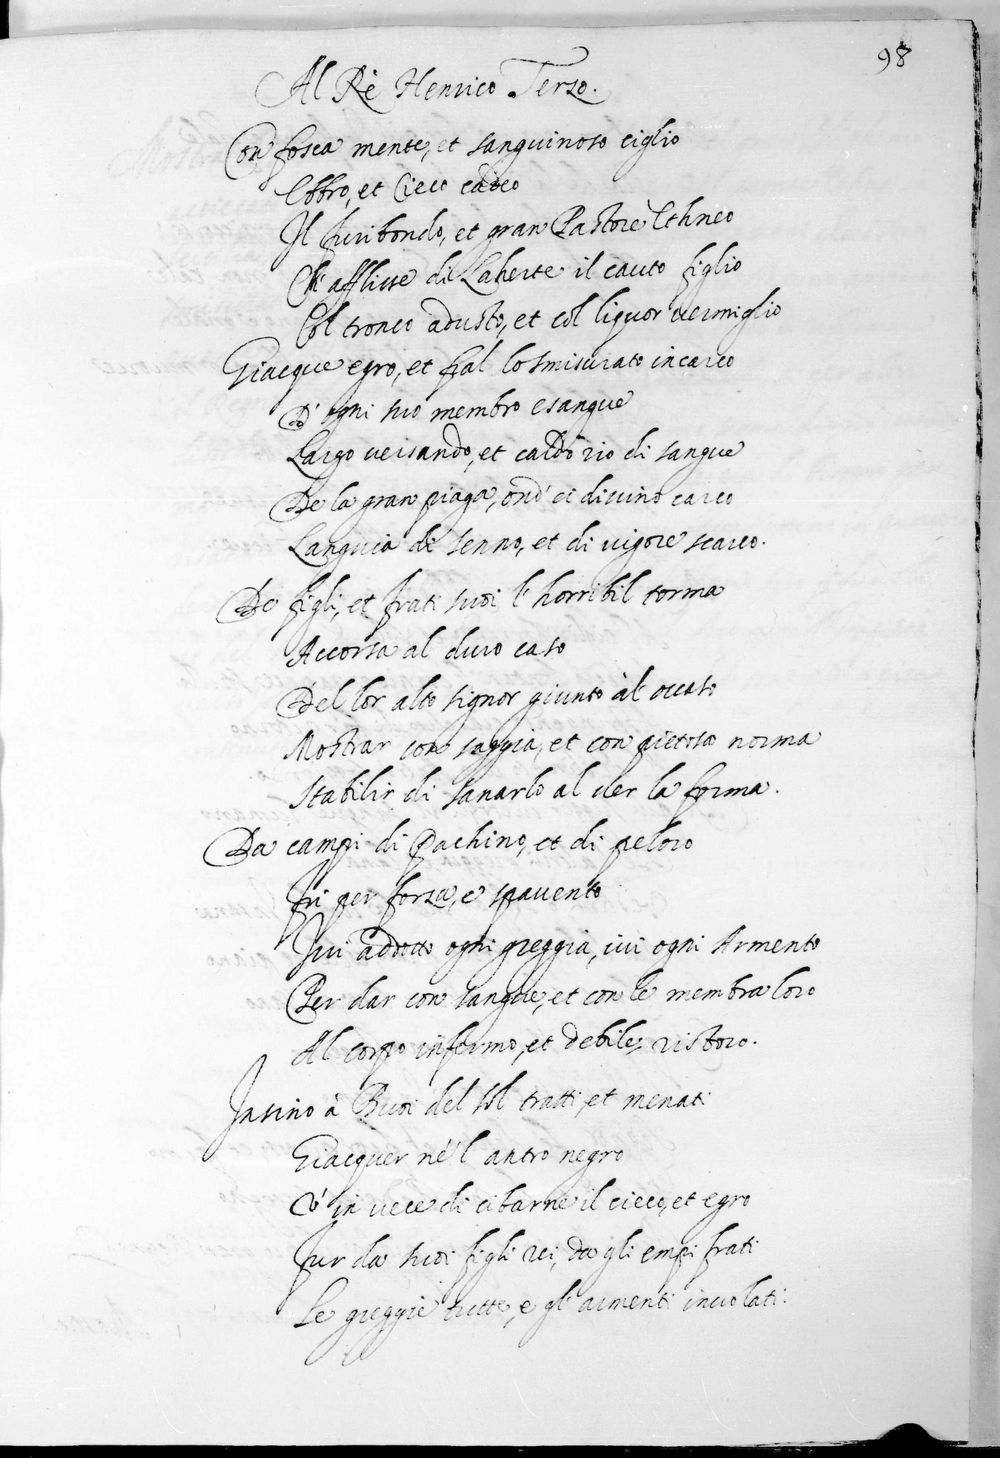 98
Al Rè Henrico Terzo.
Con fosca mente, et sanguinoso ciglio
Ebbro, et Cieco cadeo
Il furibondo, et gran Pastore Ethneo
Ch'afflisse di Laherte il cauto figlio
Col tronco adusto, et col liquor vermiglio
Giacque egro, et fral lo smisurato incarco
D'ogni suo membro esangue
Largo versando, et caldo rio di sangue
De la gran piaga, ond' ei divino carco
Languia di senno, et di vigore scarco.
De figli, et frati suoi l'horribil torma
Accorsa al duro caso
Del lor alto signor giunto à l'occaso
Mostrar con saggia, et con pietosa norma
Stabilir di sanarlo al ver la forma.
Da campi di Pachino, et di peloro
Fù per forza, e spavento
Ivi addotto ogni greggia, ivi ogni Armento
Per dar con sangue, et con le membra loro
Al corpo infermo, et debile, ristoro.
Insino à Buoi del sol tratti, et menati
Giacquer ne'l antro negro
V' in vece di cibarne il cieco, et egro
Fur da suoi figli rei, da gli empi frati
Le greggie tutte, e gli armenti involati.